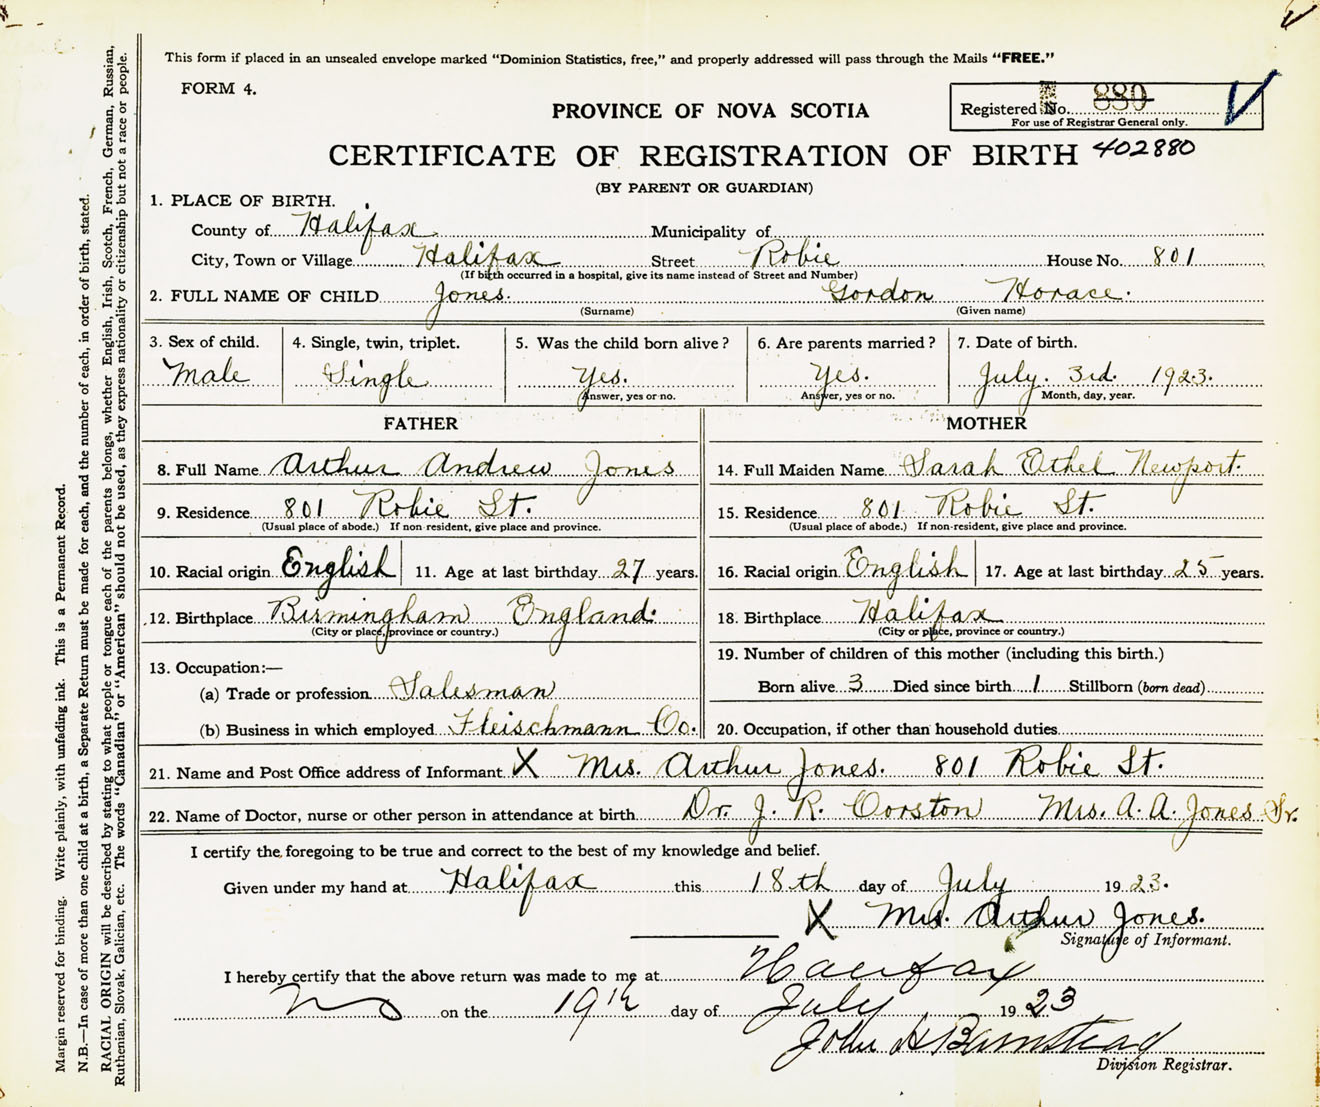 This form if placed in an unsealed envelope marked "Dominion Statistics, free," and properly addressed will pass through the Mails "FREE."
FORM 4.
PROVINCE OF NOVA SCOTIA
Registered No. 880
For use of Registrar General only.
CERTIFICATE OF REGISTRATION OF BIRTH 402880
(BY PARENT OR GUARDIAN)
1. PLACE OF BIRTH.
County of Halifax Municipality of
City, Town or Village Halifax Street Robie House No. 801
(If birth occurred in a hospital, give its name instead of Street and Number)
2. FULL NAME OF CHILD Jones. Gordon Horace.
(Surname) (Given name)
3. Sex of child. 4. Single, twin, triplet. 5. Was the child born alive? 6. Are parents married? 7. Date of birth.
Male Single Yes. Yes. July. 3rd. 1923.
Answer, yes or no. Answer, yes or no. Month, day, year.
FATHER MOTHER
8. Full Name Arthur Andrew Jones 14. Full Maiden Name Sarah Ethel Newport.
9. Residence 801 Robie St. 15. Residence 801 Robie St.
(Usual place of abode.) If non-resident, give place and province. (Usual place of abode.) If non-resident, give place and province.
10. Racial origin English 11. Age at last birthday 27 years. 16. Racial origin English 17. Age at last birthday 25 years.
12. Birthplace Birmingham England. 18. Birthplace Halifax
(City or place, province or country.) (City or place, province or country.)
13. Occupation:— 19. Number of children of this mother (including this birth.)
(a) Trade or profession Salesman Born alive 3 Died since birth 1 Stillborn (born dead)
(b) Business in which employed Fleischmann Co. 20. Occupation, if other than household duties
21. Name and Post Office address of Informant X Mrs. Arthur Jones. 801 Robie St.
22. Name of Doctor, nurse or other person in attendance at birth Dr. J. R. Corston Mrs. A. A. Jones Sr.
I certify the foregoing to be true and correct to the best of my knowledge and belief.
Given under my hand at Halifax this 18th day of July 1923.
X Mrs. Arthur Jones.
Signature of Informant.
I hereby certify that the above return was made to me at Halifax
on the 19th day of July 1923
John H Barnstead
Division Registrar.
Margin reserved for binding. Write plainly, with unfading ink. This is a Permanent Record.
N.B.—In case of more than one child at a birth, a Separate Return must be made for each, and the number of each, in order of birth, stated.
RACIAL ORIGIN will be described by stating to what people or tongue each of the parents belongs, whether English, Irish, Scotch, French, German, Russian,
Ruthenian, Slovak, Galician, etc. The words "Canadian" or "American" should not be used, as they express nationality or citizenship but not a race or people.